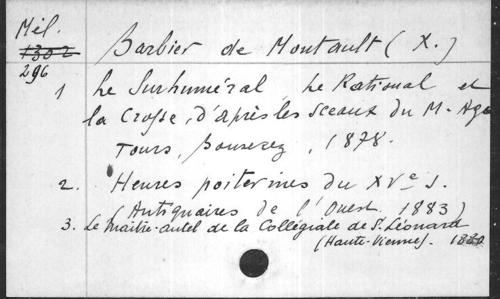 Mél.
1302
296
Barbier de Montault (X.)
1 Le Surhuméral, le Rational et
la Crosse, d'après les sceaux du M-Age
Tours, Bouserez, 1878.
2. Heures poitevines du XVe s.
(Antiquaires de l'Ouest. 1883)
3. Le Maître-autel de la Collégiale de St Léonard
(Haute-Vienne).